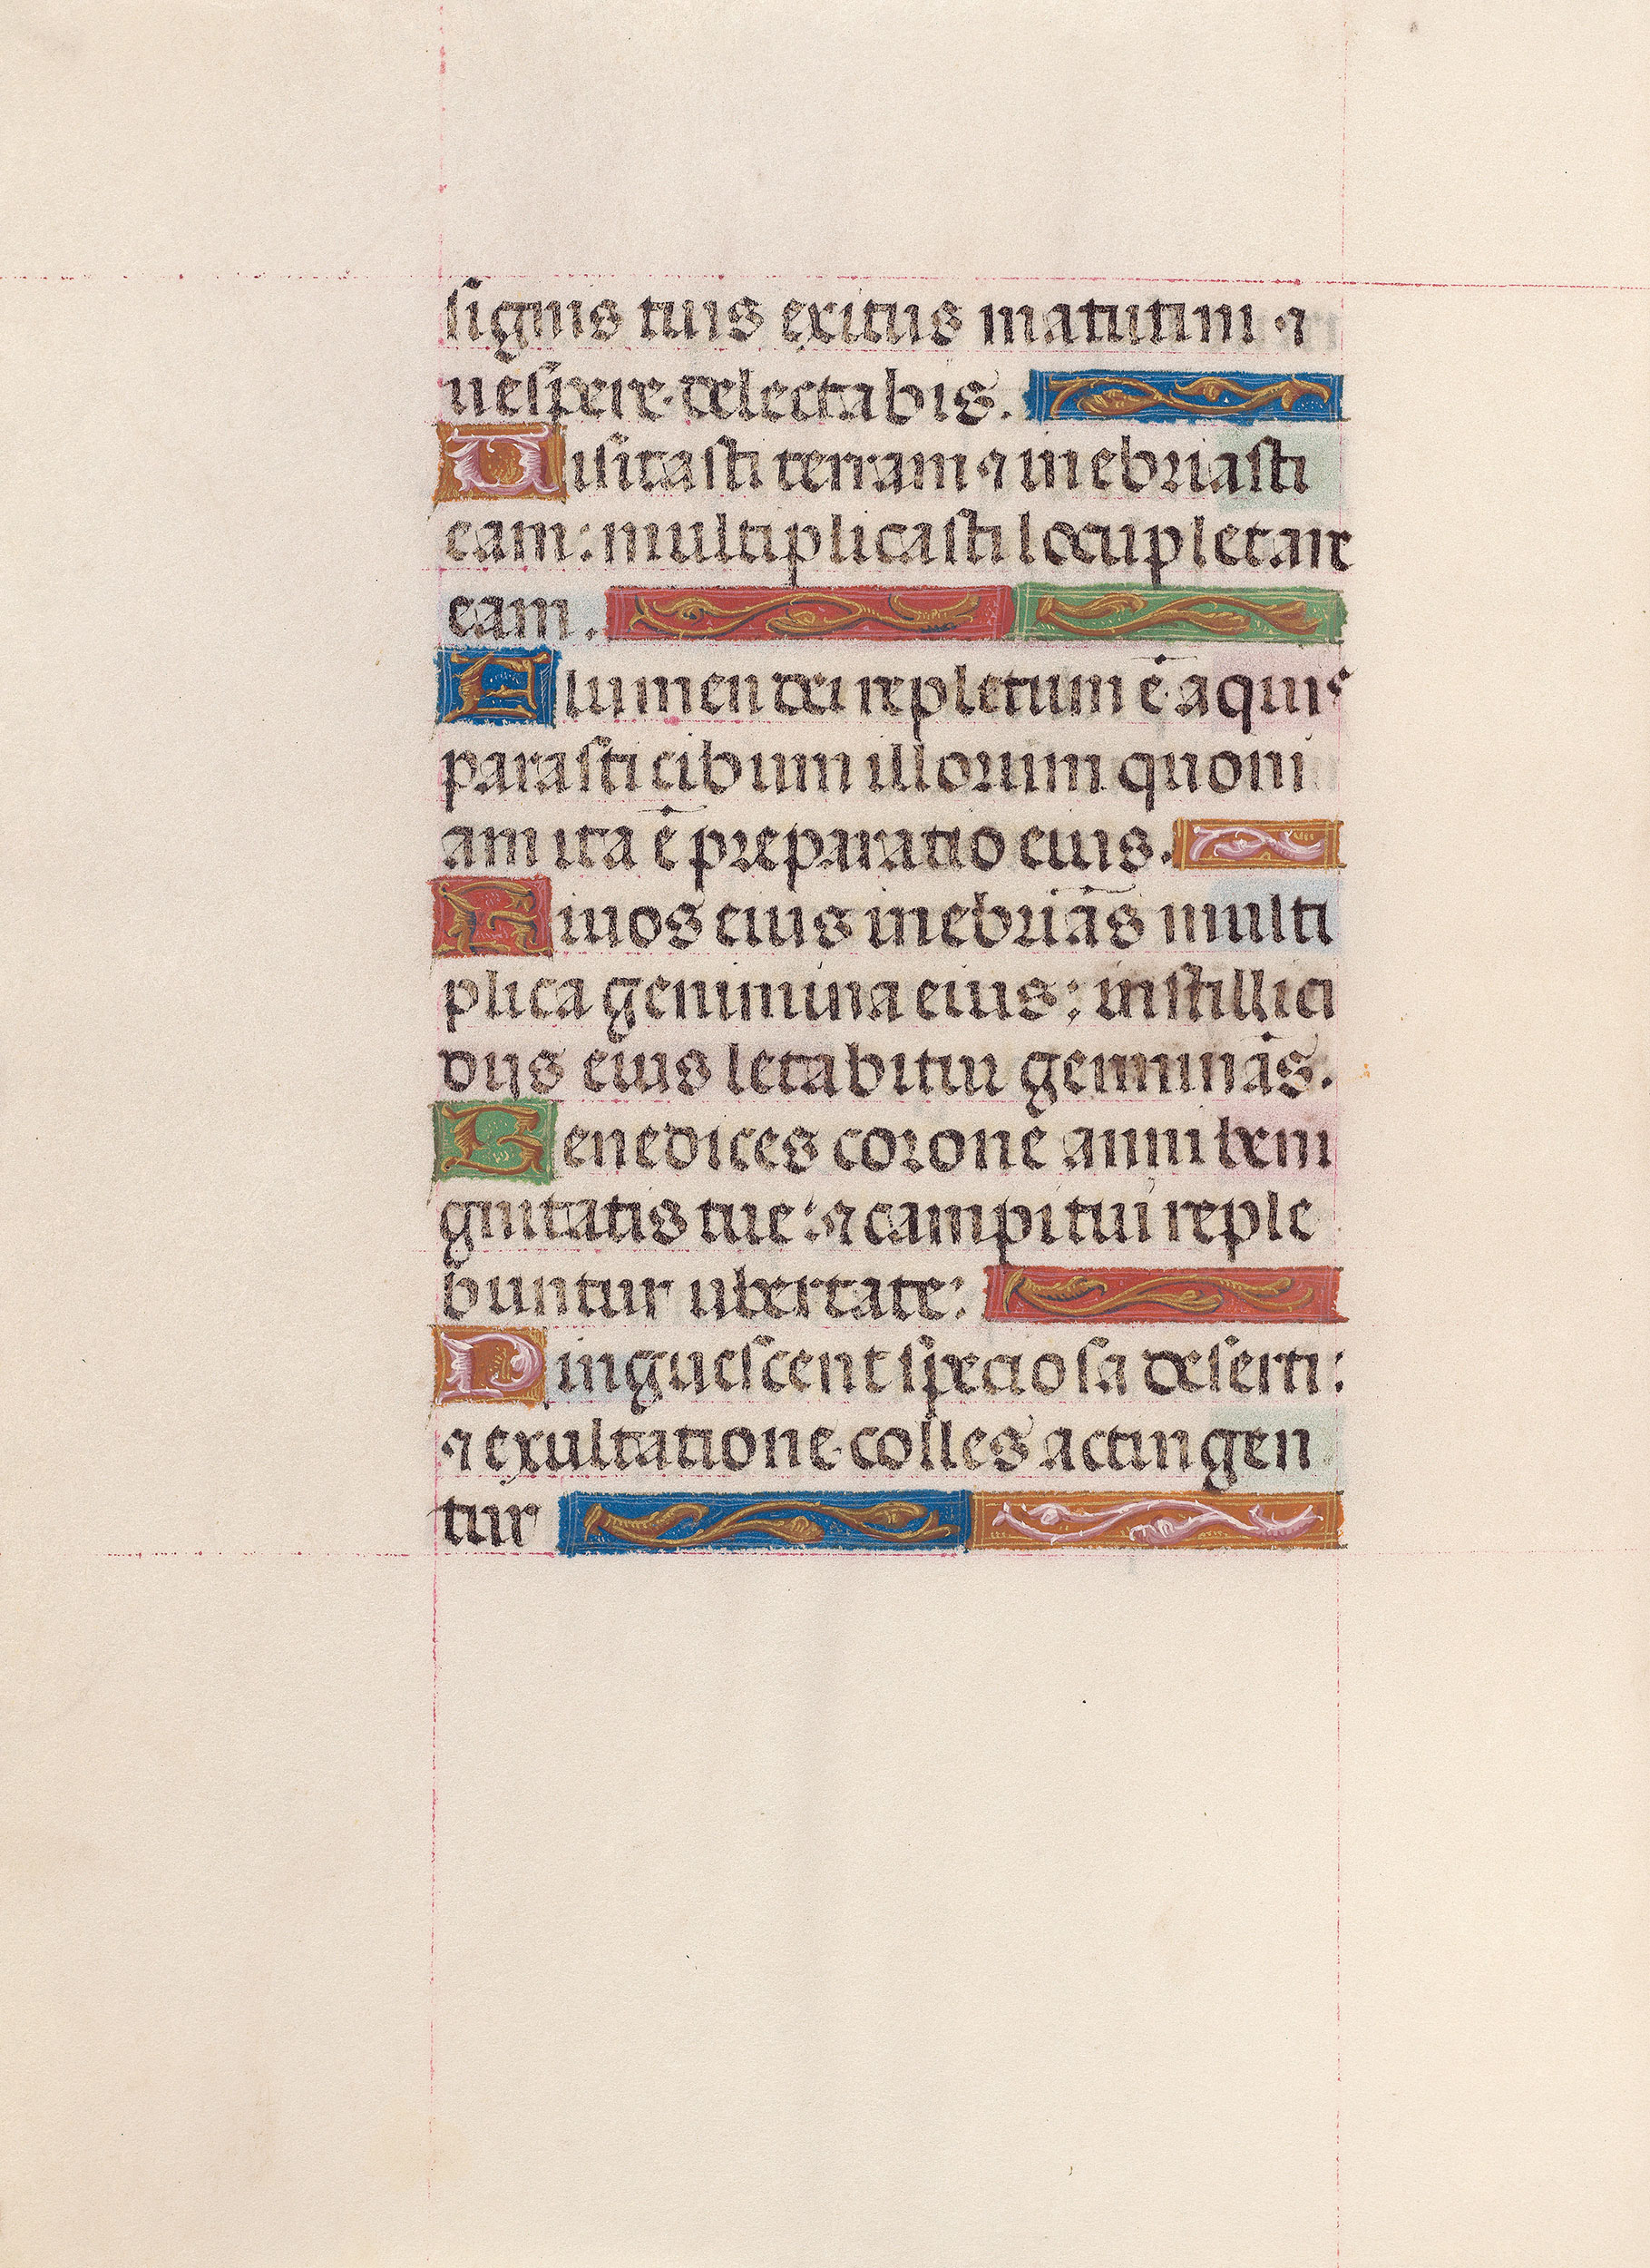 signis tuis exitus matutini ⁊
uespere delectabis.
Uisitasti terram ⁊ inebriasti
eam: multiplicasti locupletare
eam.
Flumen dei repletum ē aquis
parasti cibum illorum quoni
am ita ē preparatio eius.
Riuos eius inebriās multi
plica genimina eius: in stillici
dijs eius letabitur germinās.
Benedices corone anni beni
gnitatis tue: ⁊ campi tui reple
buntur ubertate:
Pinguescent speciosa deserti:
⁊ exultatione colles accingen
tur